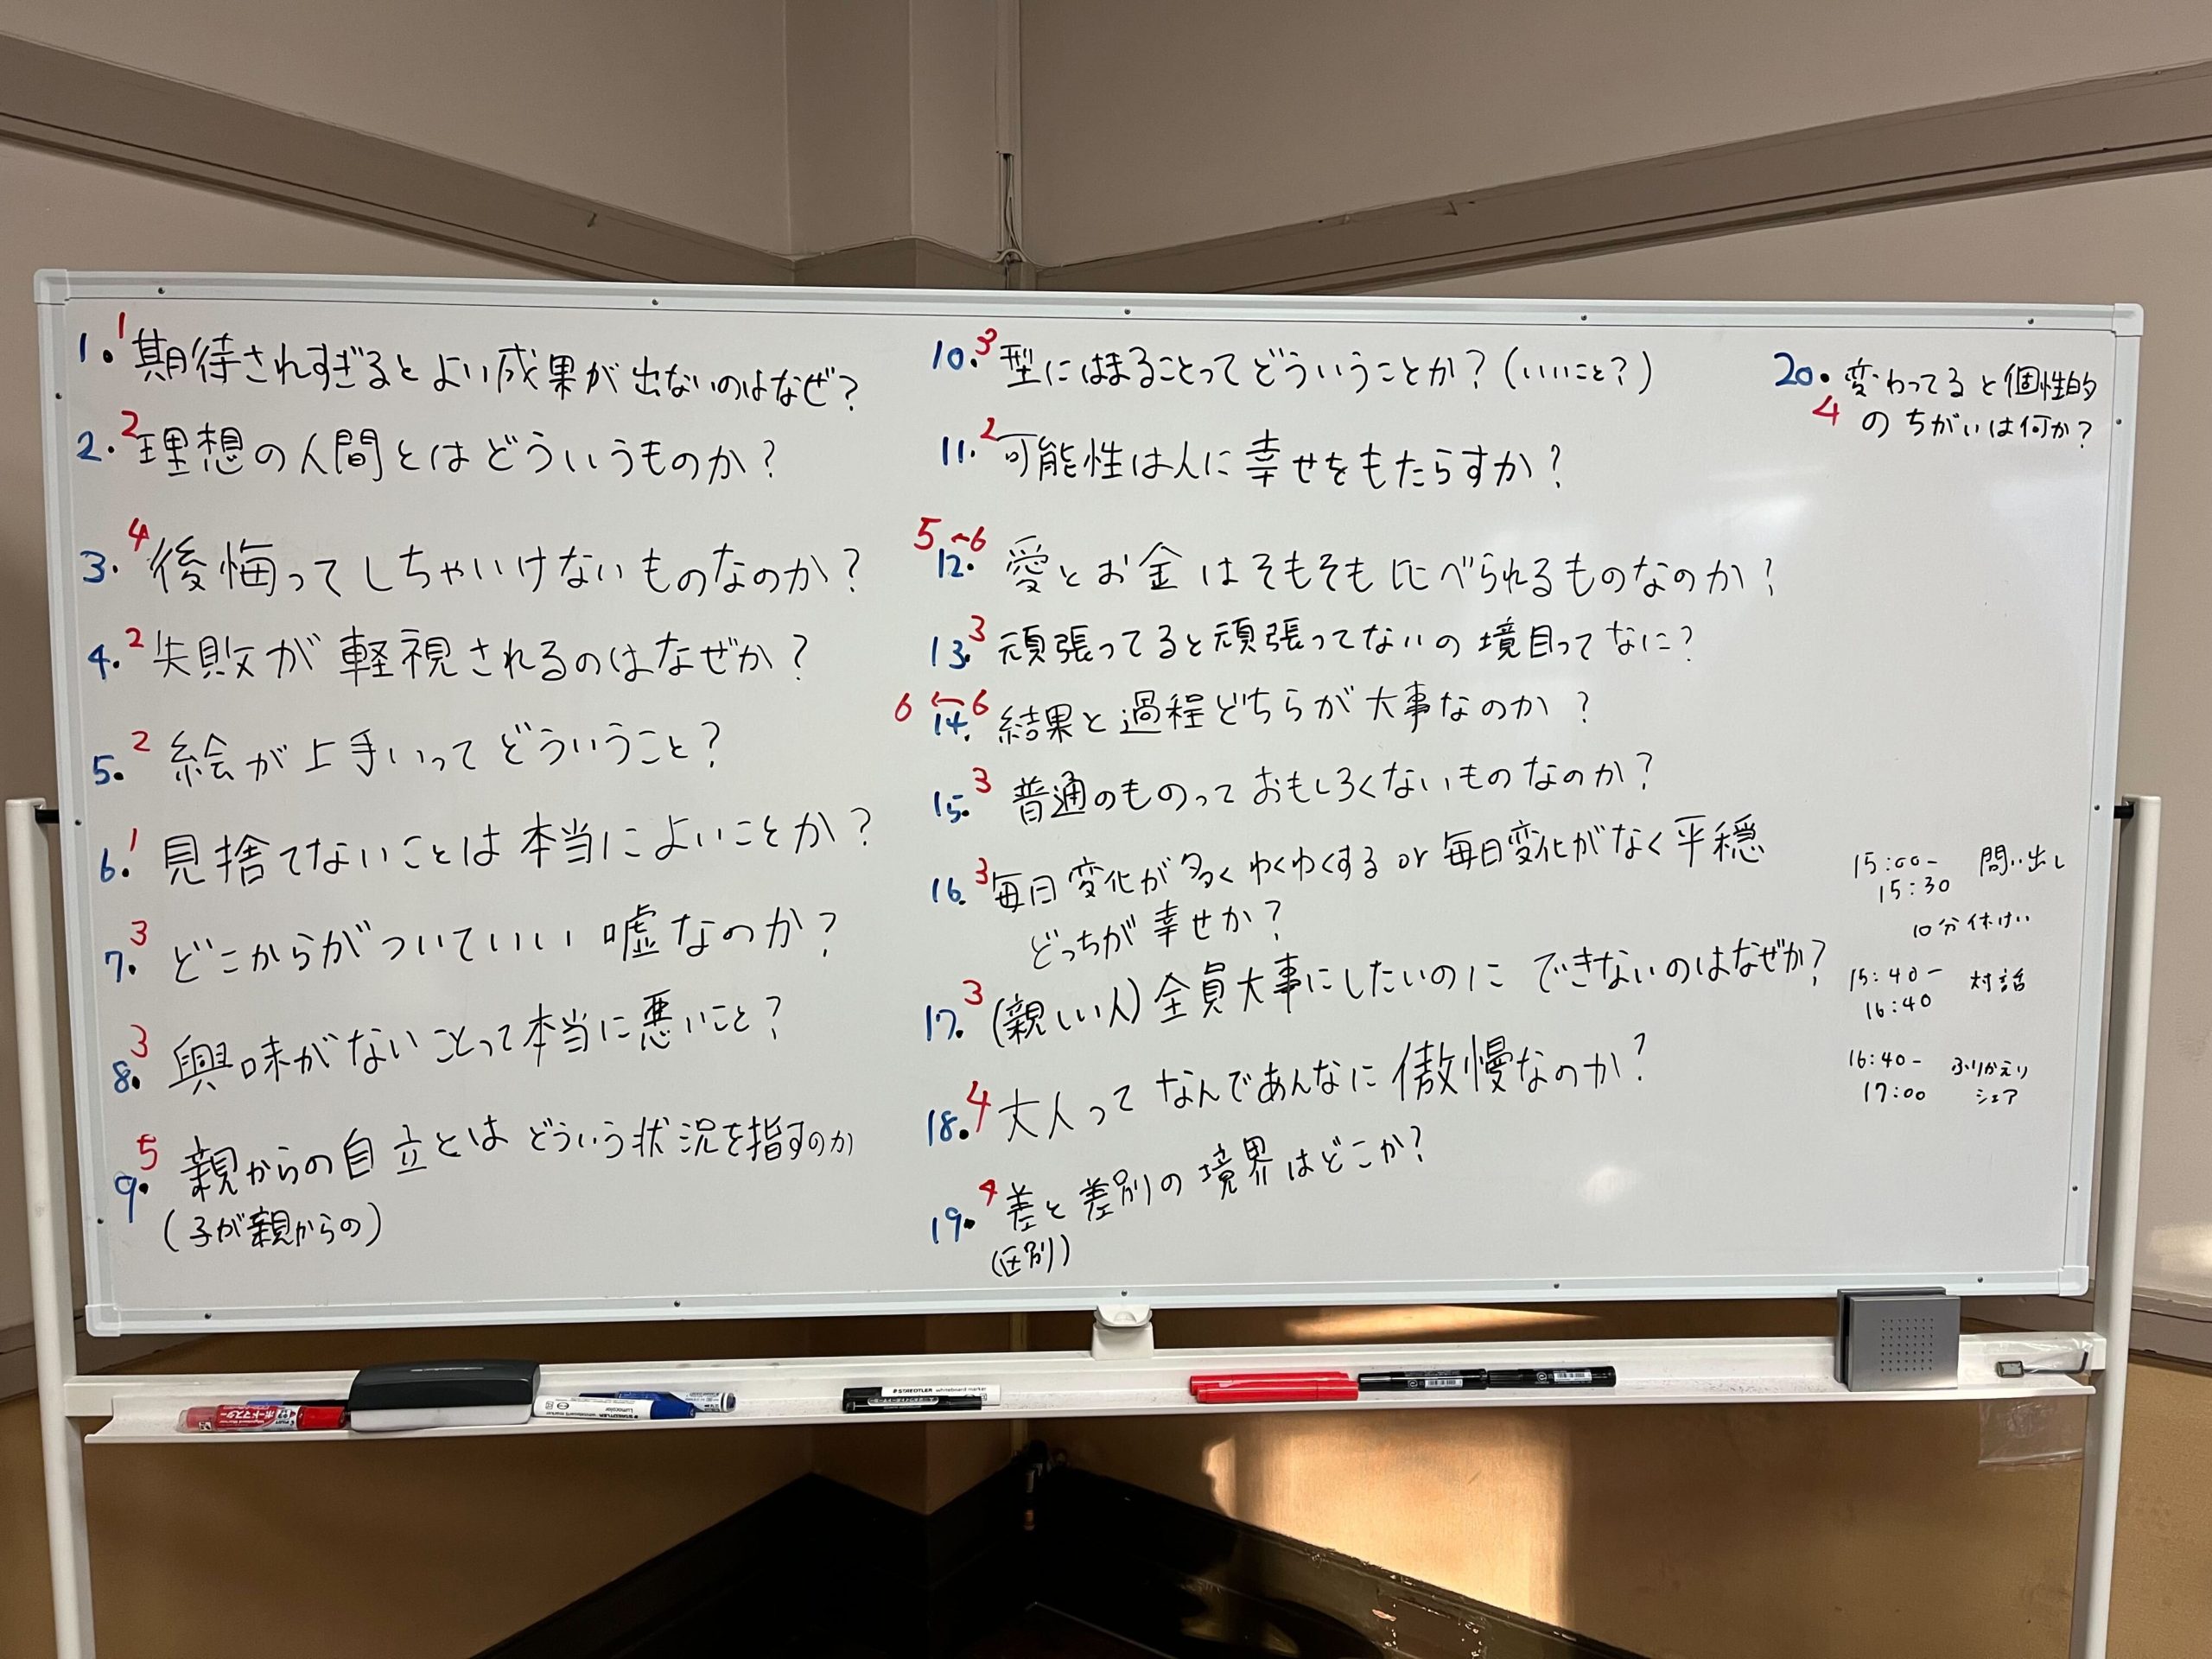 1. 1 期待されすぎるとよい成果が出ないのはなぜ?
2. 2 理想の人間とはどういうものか?
3. 4 後悔ってしちゃいけないものなのか?
4. 2 失敗が軽視されるのはなぜか?
5. 2 絵が上手いってどういうこと?
6. 1 見捨てないことは本当によいことか?
7. 3 どこからがついていい嘘なのか?
8. 3 興味がないことって本当に悪いこと?
9. 5 親からの自立とはどういう状況を指すのか
(子が親からの)
10. 3 型にはまることってどういうことか?(いいこと?)
11. 2 可能性は人に幸せをもたらすか?
5 ← 6
12. 愛とお金はそもそも比べられるものなのか?
13. 3 頑張ってると頑張ってないの境目ってなに?
6 ← 6
14. 結果と過程どちらが大事なのか?
15. 3 普通のものっておもしろくないものなのか?
16. 3 毎日変化が多くわくわくする or 毎日変化がなく平穏
どっちが幸せか?
17. 3 (親しい人)全員大事にしたいのにできないのはなぜか?
18. 4 大人ってなんであんなに傲慢なのか?
19. 4 差と差別の境界はどこか?
(区別)
20. 変わってると個性的
4 のちがいは何か?
15:00- 問い出し
15:30
10分休けい
15:40- 対話
16:40
16:40- ふりかえり
17:00 シェア
ボードマスター
STAEDTLER
Lumocolor
whiteboard marker
STAEDTLER whiteboard marker